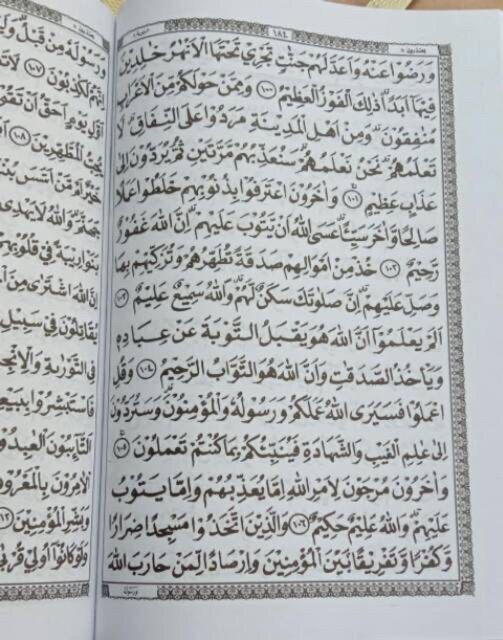 ١٨٤
وَرَضُوْا عَنْهُ وَاَعَدَّ لَهُمْ جَنّٰتٍ تَجْرِيْ تَحْتَهَا الْاَنْهٰرُ خٰلِدِيْنَ
فِيْهَآ اَبَدًا ۗ ذٰلِكَ الْفَوْزُ الْعَظِيْمُ ١٠٠ وَمِمَّنْ حَوْلَكُمْ مِّنَ الْاَعْرَابِ
مُنٰفِقُوْنَ ۗ وَمِنْ اَهْلِ الْمَدِيْنَةِ مَرَدُوْا عَلَى النِّفَاقِ ۗ لَا
تَعْلَمُهُمْ ۗ نَحْنُ نَعْلَمُهُمْ ۗ سَنُعَذِّبُهُمْ مَّرَّتَيْنِ ثُمَّ يُرَدُّوْنَ اِلٰى
عَذَابٍ عَظِيْمٍ ١٠١ وَاٰخَرُوْنَ اعْتَرَفُوْا بِذُنُوْبِهِمْ خَلَطُوْا عَمَلًا
صَالِحًا وَّاٰخَرَ سَيِّئًا ۗ عَسَى اللّٰهُ اَنْ يَّتُوْبَ عَلَيْهِمْ ۗ اِنَّ اللّٰهَ غَفُوْرٌ
رَّحِيْمٌ ١٠٢ خُذْ مِنْ اَمْوَالِهِمْ صَدَقَةً تُطَهِّرُهُمْ وَتُزَكِّيْهِمْ بِهَا
وَصَلِّ عَلَيْهِمْ ۗ اِنَّ صَلٰوتَكَ سَكَنٌ لَّهُمْ ۗ وَاللّٰهُ سَمِيْعٌ عَلِيْمٌ ١٠٣
اَلَمْ يَعْلَمُوْٓا اَنَّ اللّٰهَ هُوَ يَقْبَلُ التَّوْبَةَ عَنْ عِبَادِهٖ
وَيَأْخُذُ الصَّدَقٰتِ وَاَنَّ اللّٰهَ هُوَ التَّوَّابُ الرَّحِيْمُ ١٠٤ وَقُلِ
اعْمَلُوْا فَسَيَرَى اللّٰهُ عَمَلَكُمْ وَرَسُوْلُهٗ وَالْمُؤْمِنُوْنَ ۗ وَسَتُرَدُّوْنَ
اِلٰى عٰلِمِ الْغَيْبِ وَالشَّهَادَةِ فَيُنَبِّئُكُمْ بِمَا كُنْتُمْ تَعْمَلُوْنَ ١٠٥
وَاٰخَرُوْنَ مُرْجَوْنَ لِاَمْرِ اللّٰهِ اِمَّا يُعَذِّبُهُمْ وَاِمَّا يَتُوْبُ
عَلَيْهِمْ ۗ وَاللّٰهُ عَلِيْمٌ حَكِيْمٌ ١٠٦ وَالَّذِيْنَ اتَّخَذُوْا مَسْجِدًا ضِرَارًا
وَّكُفْرًا وَّتَفْرِيْقًا بَيْنَ الْمُؤْمِنِيْنَ وَاِرْصَادًا لِّمَنْ حَارَبَ اللّٰهَ
وَرَسُوْلَهٗ
وَرَسُوْلَهٗ مِنْ قَبْلُ ۗ
لَكٰذِبُوْنَ ١٠٧
اَوَّلِ يَوْمٍ اَحَقُّ اَنْ
يُحِبُّ الْمُطَّهِّرِيْنَ ١٠٨
خَيْرٌ اَمْ مَّنْ اَسَّسَ
جَهَنَّمَ ۗ وَاللّٰهُ لَا يَهْدِى
بَنَوْا رِيْبَةً فِيْ قُلُوْبِهِمْ
اِنَّ اللّٰهَ اشْتَرٰى مِنَ
يُقَاتِلُوْنَ فِيْ سَبِيْلِ
فِى التَّوْرٰىةِ
فَاسْتَبْشِرُوْا
اَلتَّاۤىِٕبُوْنَ
الْاٰمِرُوْنَ
وَبَشِّرِ الْمُؤْمِنِيْنَ
وَلَوْ كَانُوْٓا اُولِيْ